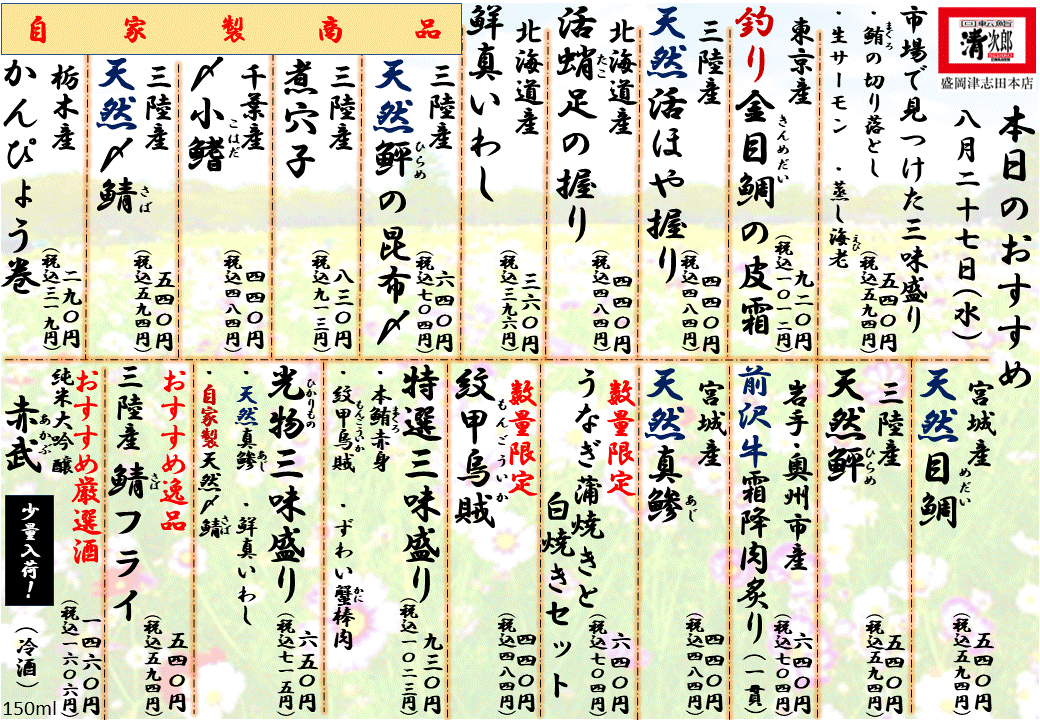 回転鮨
清次郎
盛岡津志田本店
本日のおすすめ
八月二十七日(水)
市場で見つけた三味盛り
・鮪の切り落とし
まぐろ
・生サーモン ・蒸し海老
えび
五四〇円
(税込五九四円)
東京産
釣り金目鯛の皮霜
きんめだい
九二〇円
(税込一〇一二円)
三陸産
天然活ほや握り
四四〇円
(税込四八四円)
北海道産
活蛸足の握り
たこ
四四〇円
(税込四八四円)
北海道産
鮮真いわし
三六〇円
(税込三九六円)
自家製商品
三陸産
天然鮃の昆布〆
ひらめ
六四〇円
(税込七〇四円)
三陸産
煮穴子
八三〇円
(税込九一三円)
千葉産
〆小鰭
こはだ
四四〇円
(税込四八四円)
三陸産
天然〆鯖
さば
五四〇円
(税込五九四円)
栃木産
かんぴょう巻
二九〇円
(税込三一九円)
宮城産
天然目鯛
めだい
五四〇円
(税込五九四円)
三陸産
天然鮃
ひらめ
五四〇円
(税込五九四円)
岩手・奥州市産
前沢牛霜降肉炙り(一貫)
六四〇円
(税込七〇四円)
宮城産
天然真鯵
あじ
四四〇円
(税込四八四円)
数量限定
うなぎ蒲焼きと
白焼きセット
六四〇円
(税込七〇四円)
数量限定
紋甲烏賊
もんごういか
四四〇円
(税込四八四円)
特選三味盛り
・本鮪赤身
まぐろ
・紋甲烏賊 ・ずわい蟹棒肉
もんごういか
かに
九三〇円
(税込一〇二三円)
光物三味盛り
ひかりもの
・天然真鯵 ・鮮真いわし
あじ
・自家製天然〆鯖
さば
六五〇円
(税込七一五円)
おすすめ逸品
三陸産 鯖フライ
さば
五四〇円
(税込五九四円)
おすすめ厳選酒
純米大吟醸
赤武
あかぶ
少量入荷!
(冷酒)
一四六〇円
(税込一六〇六円)
150ml